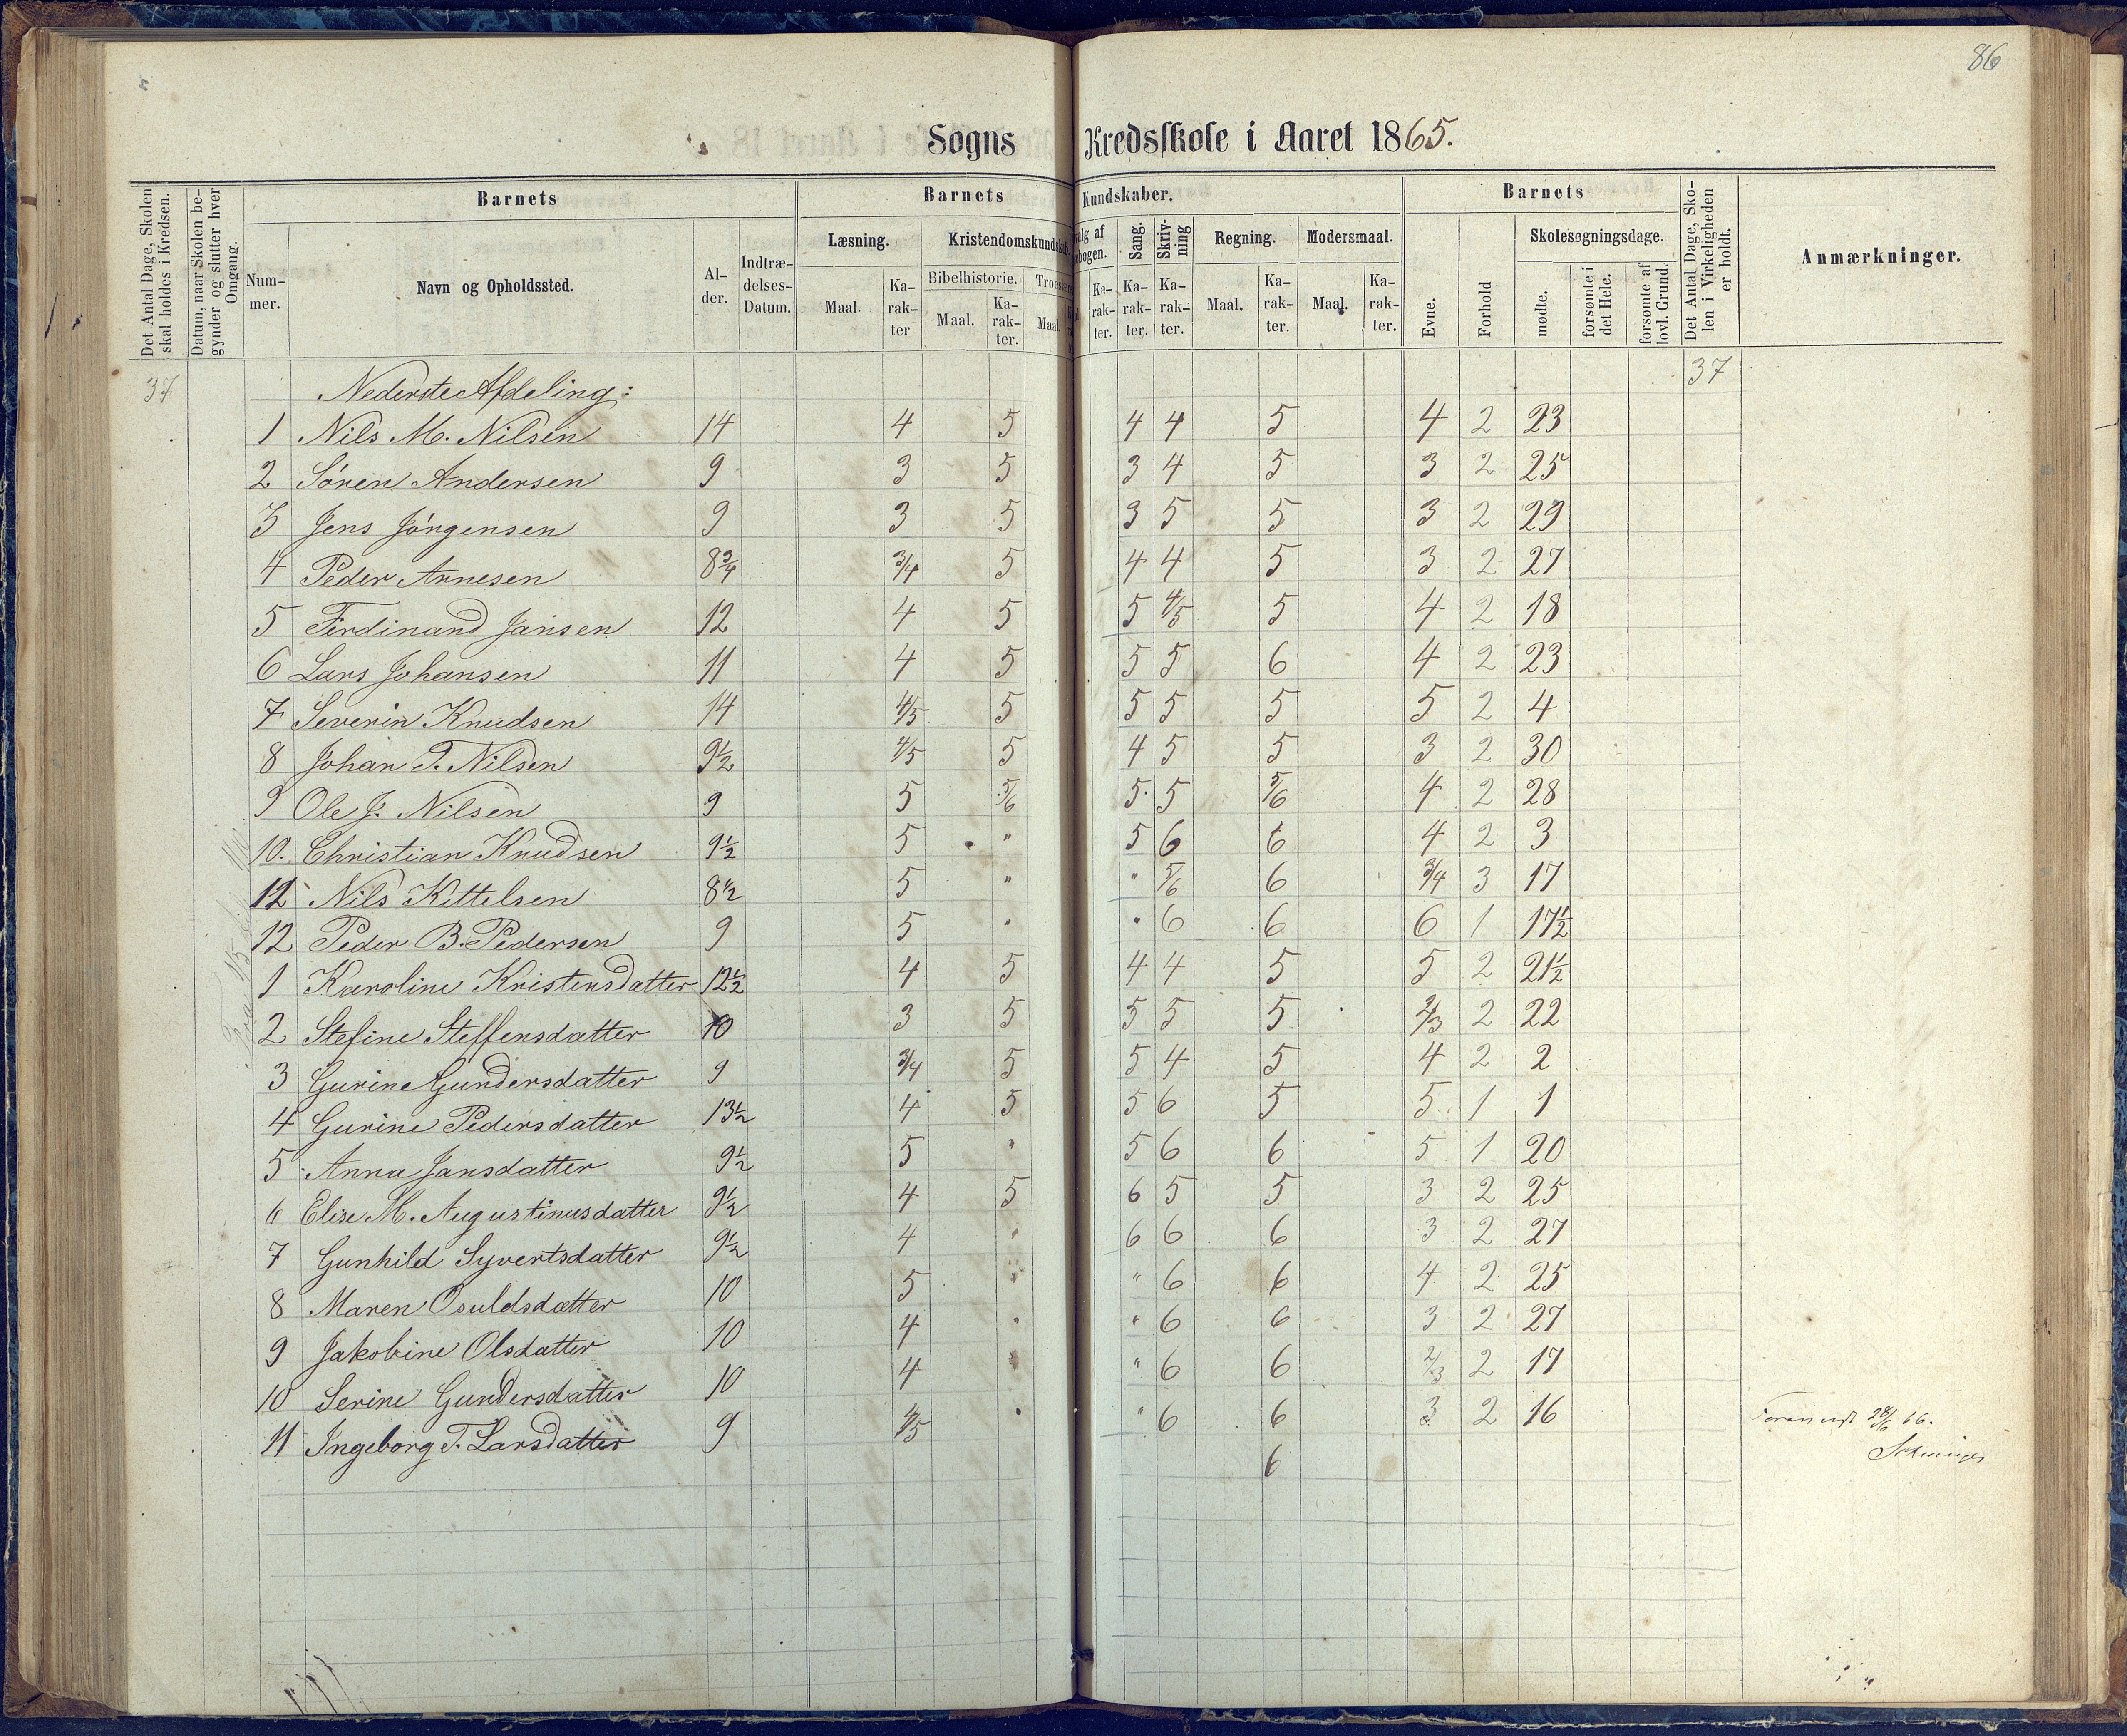 86
Sogns Kredsskole i Aaret 1865.
Det Antal Dage, Skolen skal holdes i Kredsen.
Datum, naar Skolen begynder og slutter hver Omgang.
Barnets
Nummer.
Navn og Opholdssted.
Alder.
Indtrædelses-Datum.
Barnets Kundskaber.
Læsning. Kristendomskundskab
Maal. Karakter
Bibelhistorie. Maal. Karakter.
Maal.
Karakter.
Sang. Karakter.
Skrivning Karakter.
Regning. Maal. Karakter.
Modersmaal. Maal. Karakter.
Barnets
Evne. Forhold
Skolesøgningsdage.
mødte. forsømte i det Hele. forsømte af lovl. Grund.
Det Antal Dage, Skolen i Virkeligheden er holdt.
Anmærkninger.
37 Nederste Afdeling: 37
1 Nils M. Nilsen 14 4 5 4 4 5 4 2 23
2 Søren Andersen 9 3 5 3 4 5 3 2 25
3 Jens Jørgensen 9 3 5 3 5 5 3 2 29
4 Peder Arnesen 8 3/4 3/4 5 4 4 5 3 2 27
5 Ferdinand Jansen 12 4 5 5 4/5 5 4 2 18
6 Lars Johansen 11 4 5 5 5 6 4 2 23
7 Severin Knudsen 14 4/5 5 5 5 5 5 2 4
8 Johan T. Nilsen 9 1/2 4/5 5 4 5 5 3 2 30
9 Ole J. Nilsen 9 5 5/6 5 5 5/6 4 2 28
10. Christian Knudsen 9 1/2 5 " 5 6 6 4 2 3
11 Nils Kittelsen 8 1/2 5 " " 5/6 6 3/4 3 17
12 Peder B. Pedersen 9 5 " " 6 6 6 1 17 1/2
1 Karoline Kristensdatter 12 1/2 4 5 4 4 5 5 2 21 1/2
2 Stefine Steffensdatter 10 3 5 5 5 5 2/3 2 22
3 Gurine Gundersdatter 9 3/4 5 5 4 5 4 2 2
4 Gurine Pedersdatter 13 1/2 4 5 5 6 5 5 1 1
5 Anna Jansdatter 9 1/2 5 " 5 6 6 5 1 20
6 Elise M. Augustinusdatter 9 1/2 4 5 6 5 5 3 2 25
7 Gunhild Syvertsdatter 9 1/2 4 " 6 6 6 3 2 27
8 Maren Osuldsdatter 10 5 " " 6 6 4 2 25
9 Jakobine Olsdatter 10 4 " " 6 6 3 2 27
10 Serine Gundersdatter 10 4 " " 6 6 2/3 2 17
11 Ingeborg T. Larsdatter 9 4/5 " " 6 6 3 2 16
6
28/6 66.